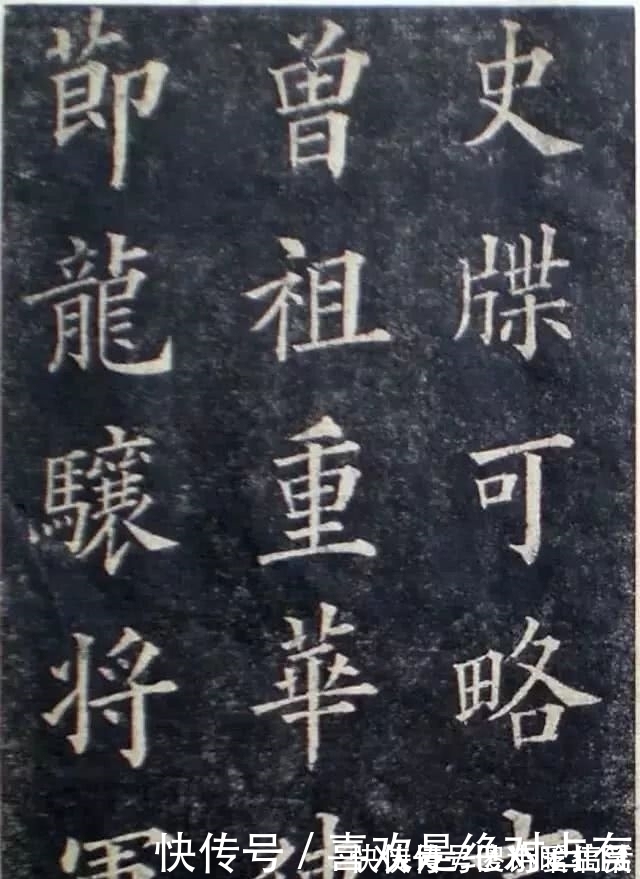 史牒可略
曾祖重華
節龍驤将軍
快传号／喜欢是绝对占有